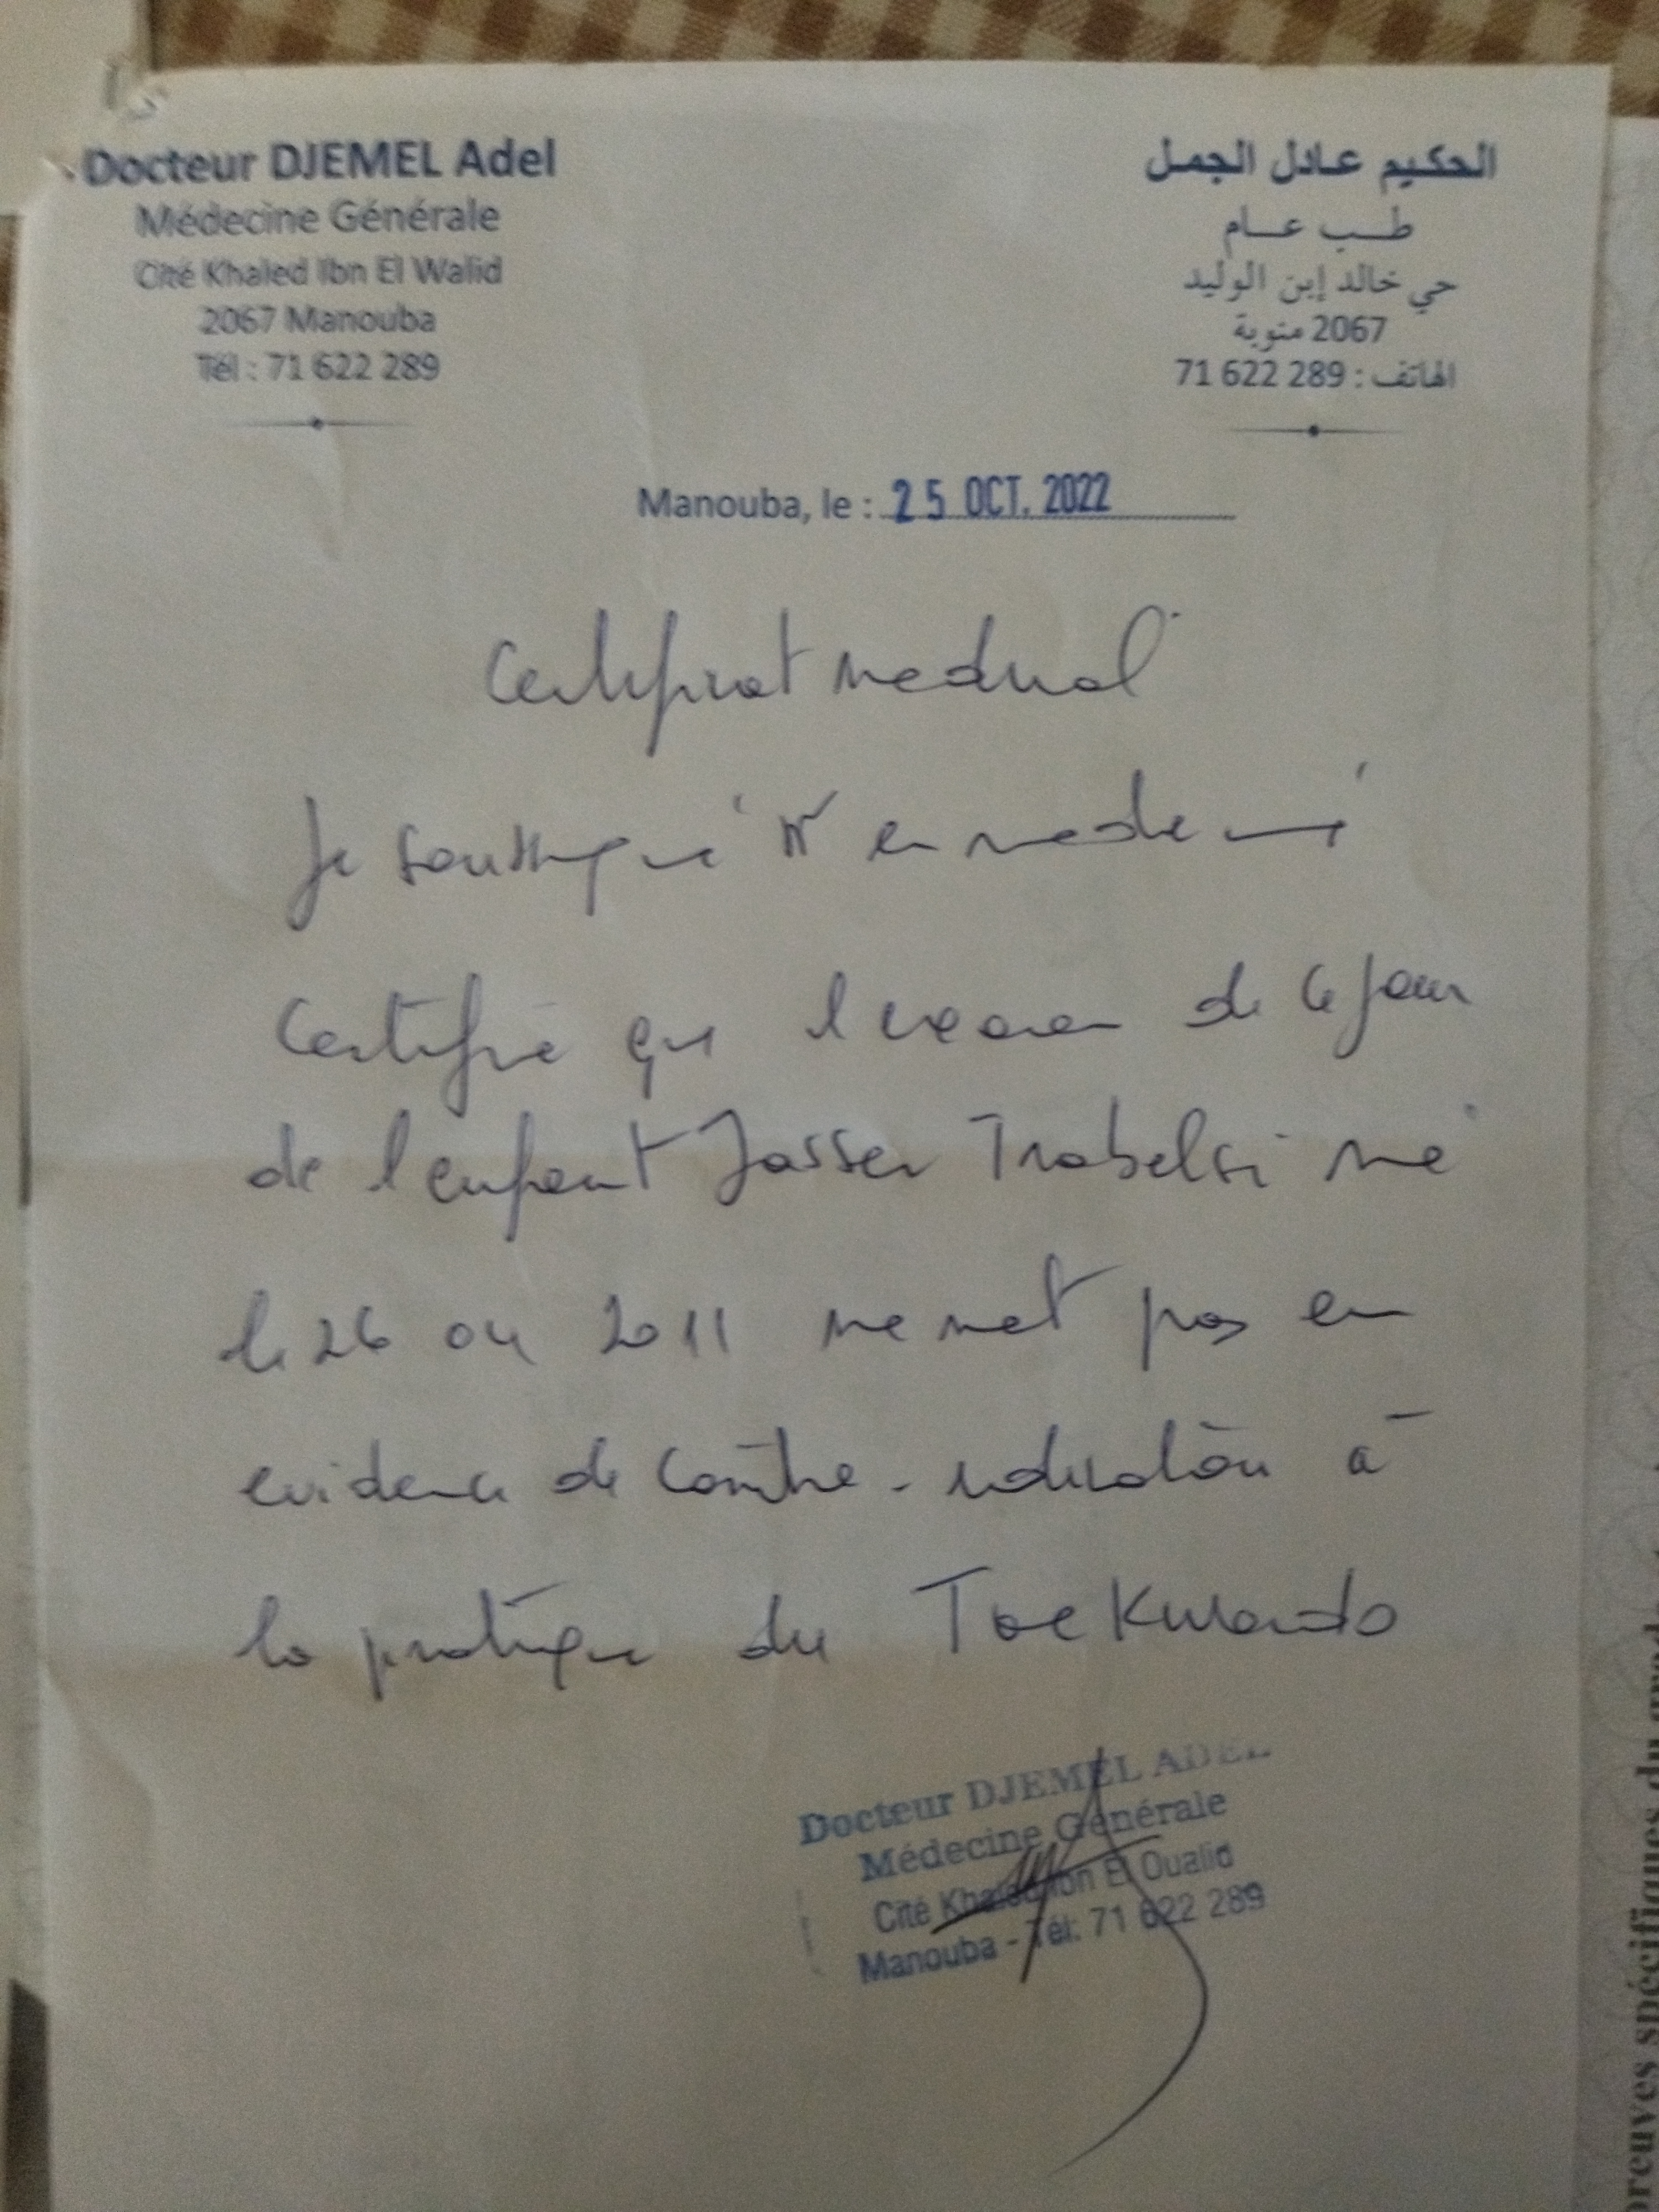 Docteur DJEMEL Adel
Médecine Générale
Cité Khaled Ibn El Walid
2067 Manouba
Tél : 71 622 289
الحكيم عادل الجمل
طب عام
حي خالد إبن الوليد
2067 منوبة
الهاتف : 71 622 289
Manouba, le : 25 OCT. 2022
Certificat medical
Je soussigné Dr en medecine
Certifie que l'examen de ce jour
de l'enfant Jasser Trabelsi né
le 26 04 2011 ne met pas en
evidence de contre-indication à
la pratique du Taekwando
Docteur DJEMEL ADEL
Médecine Générale
Cité Khaled Ibn El Oualid
Manouba - Tél: 71 622 289
preuves spécifiques du grade